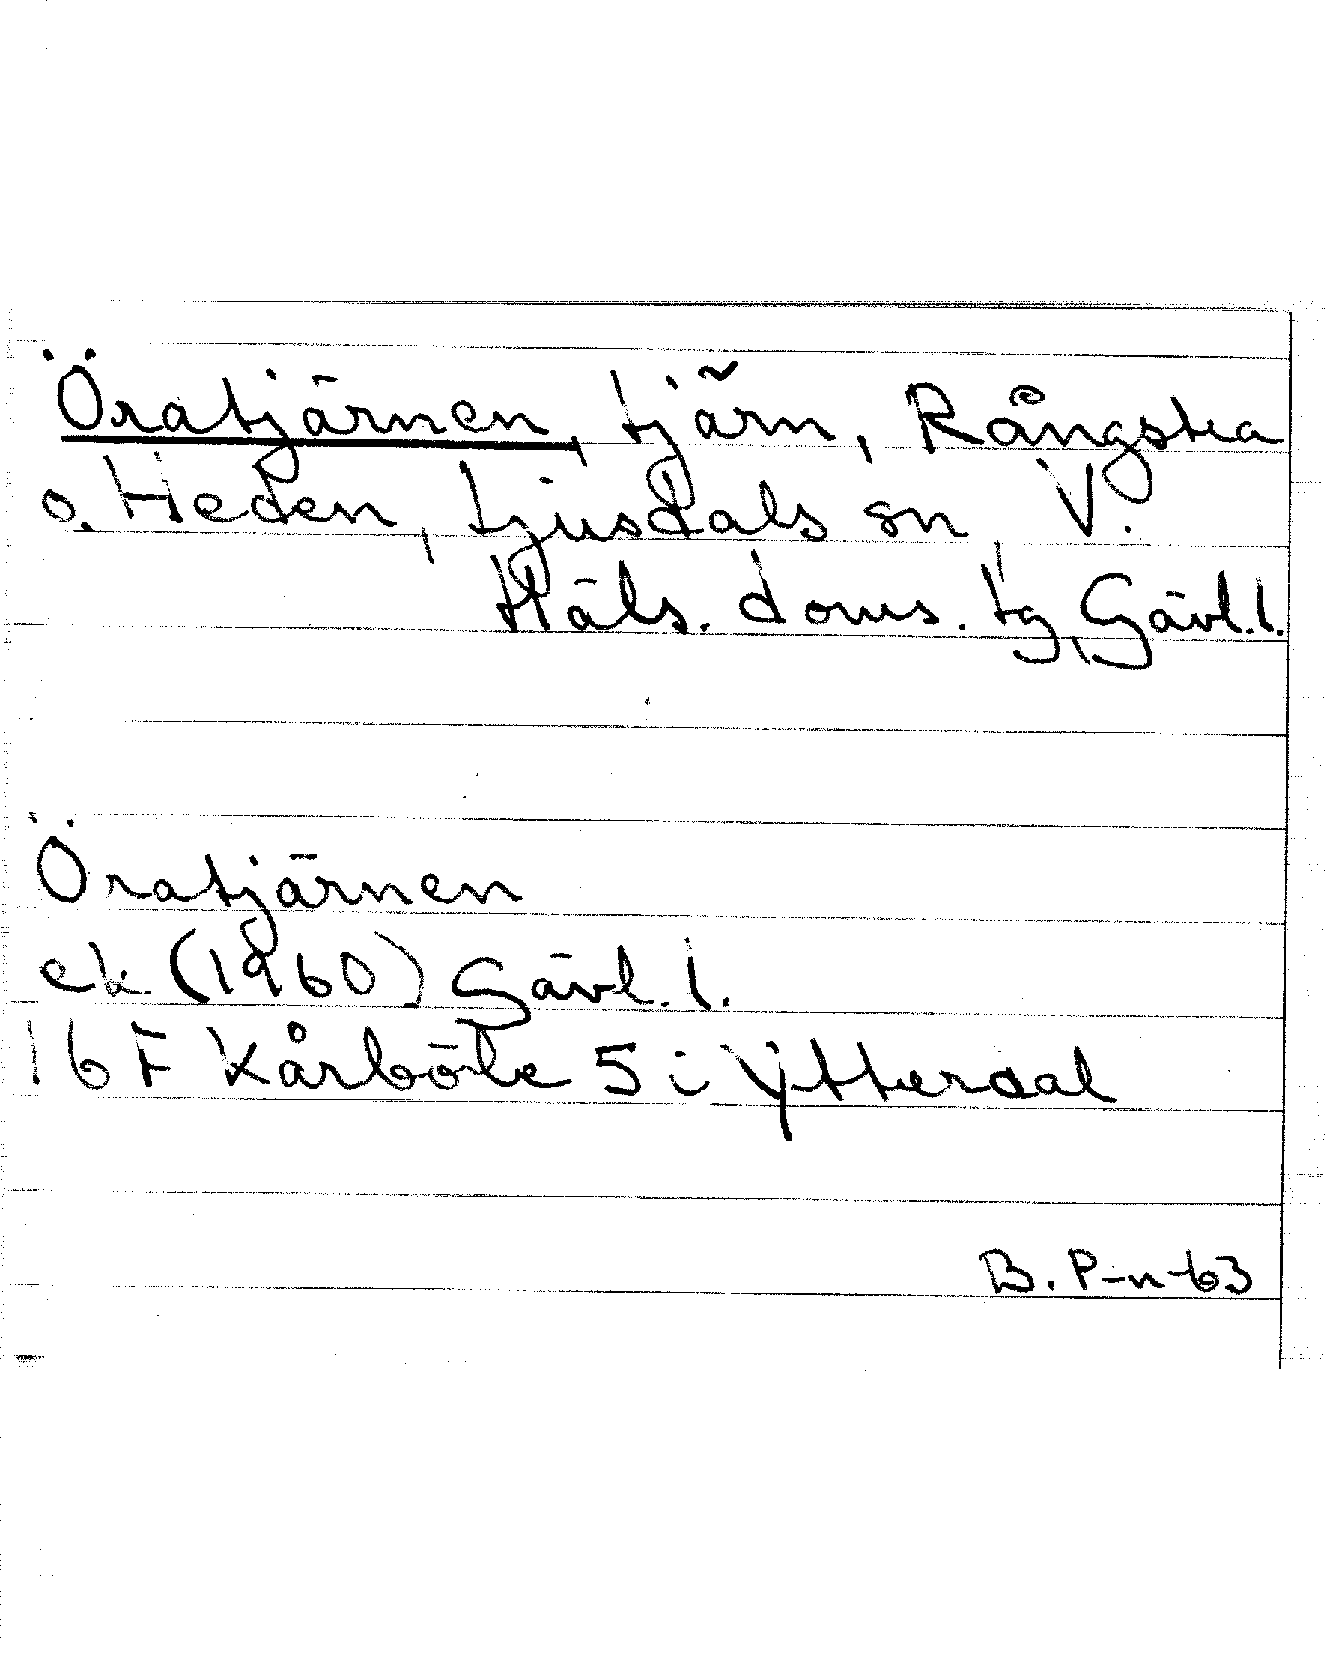 Öratjärnen, tjärn, Rångstra
o. Heden, Ljusdals sn, V.
Häls. doms. tg, Gävl. l.
Öratjärnen
ek (1960) Gävl. l.
16 F Kårböle 5 i Ytterdal
B. P-n-63